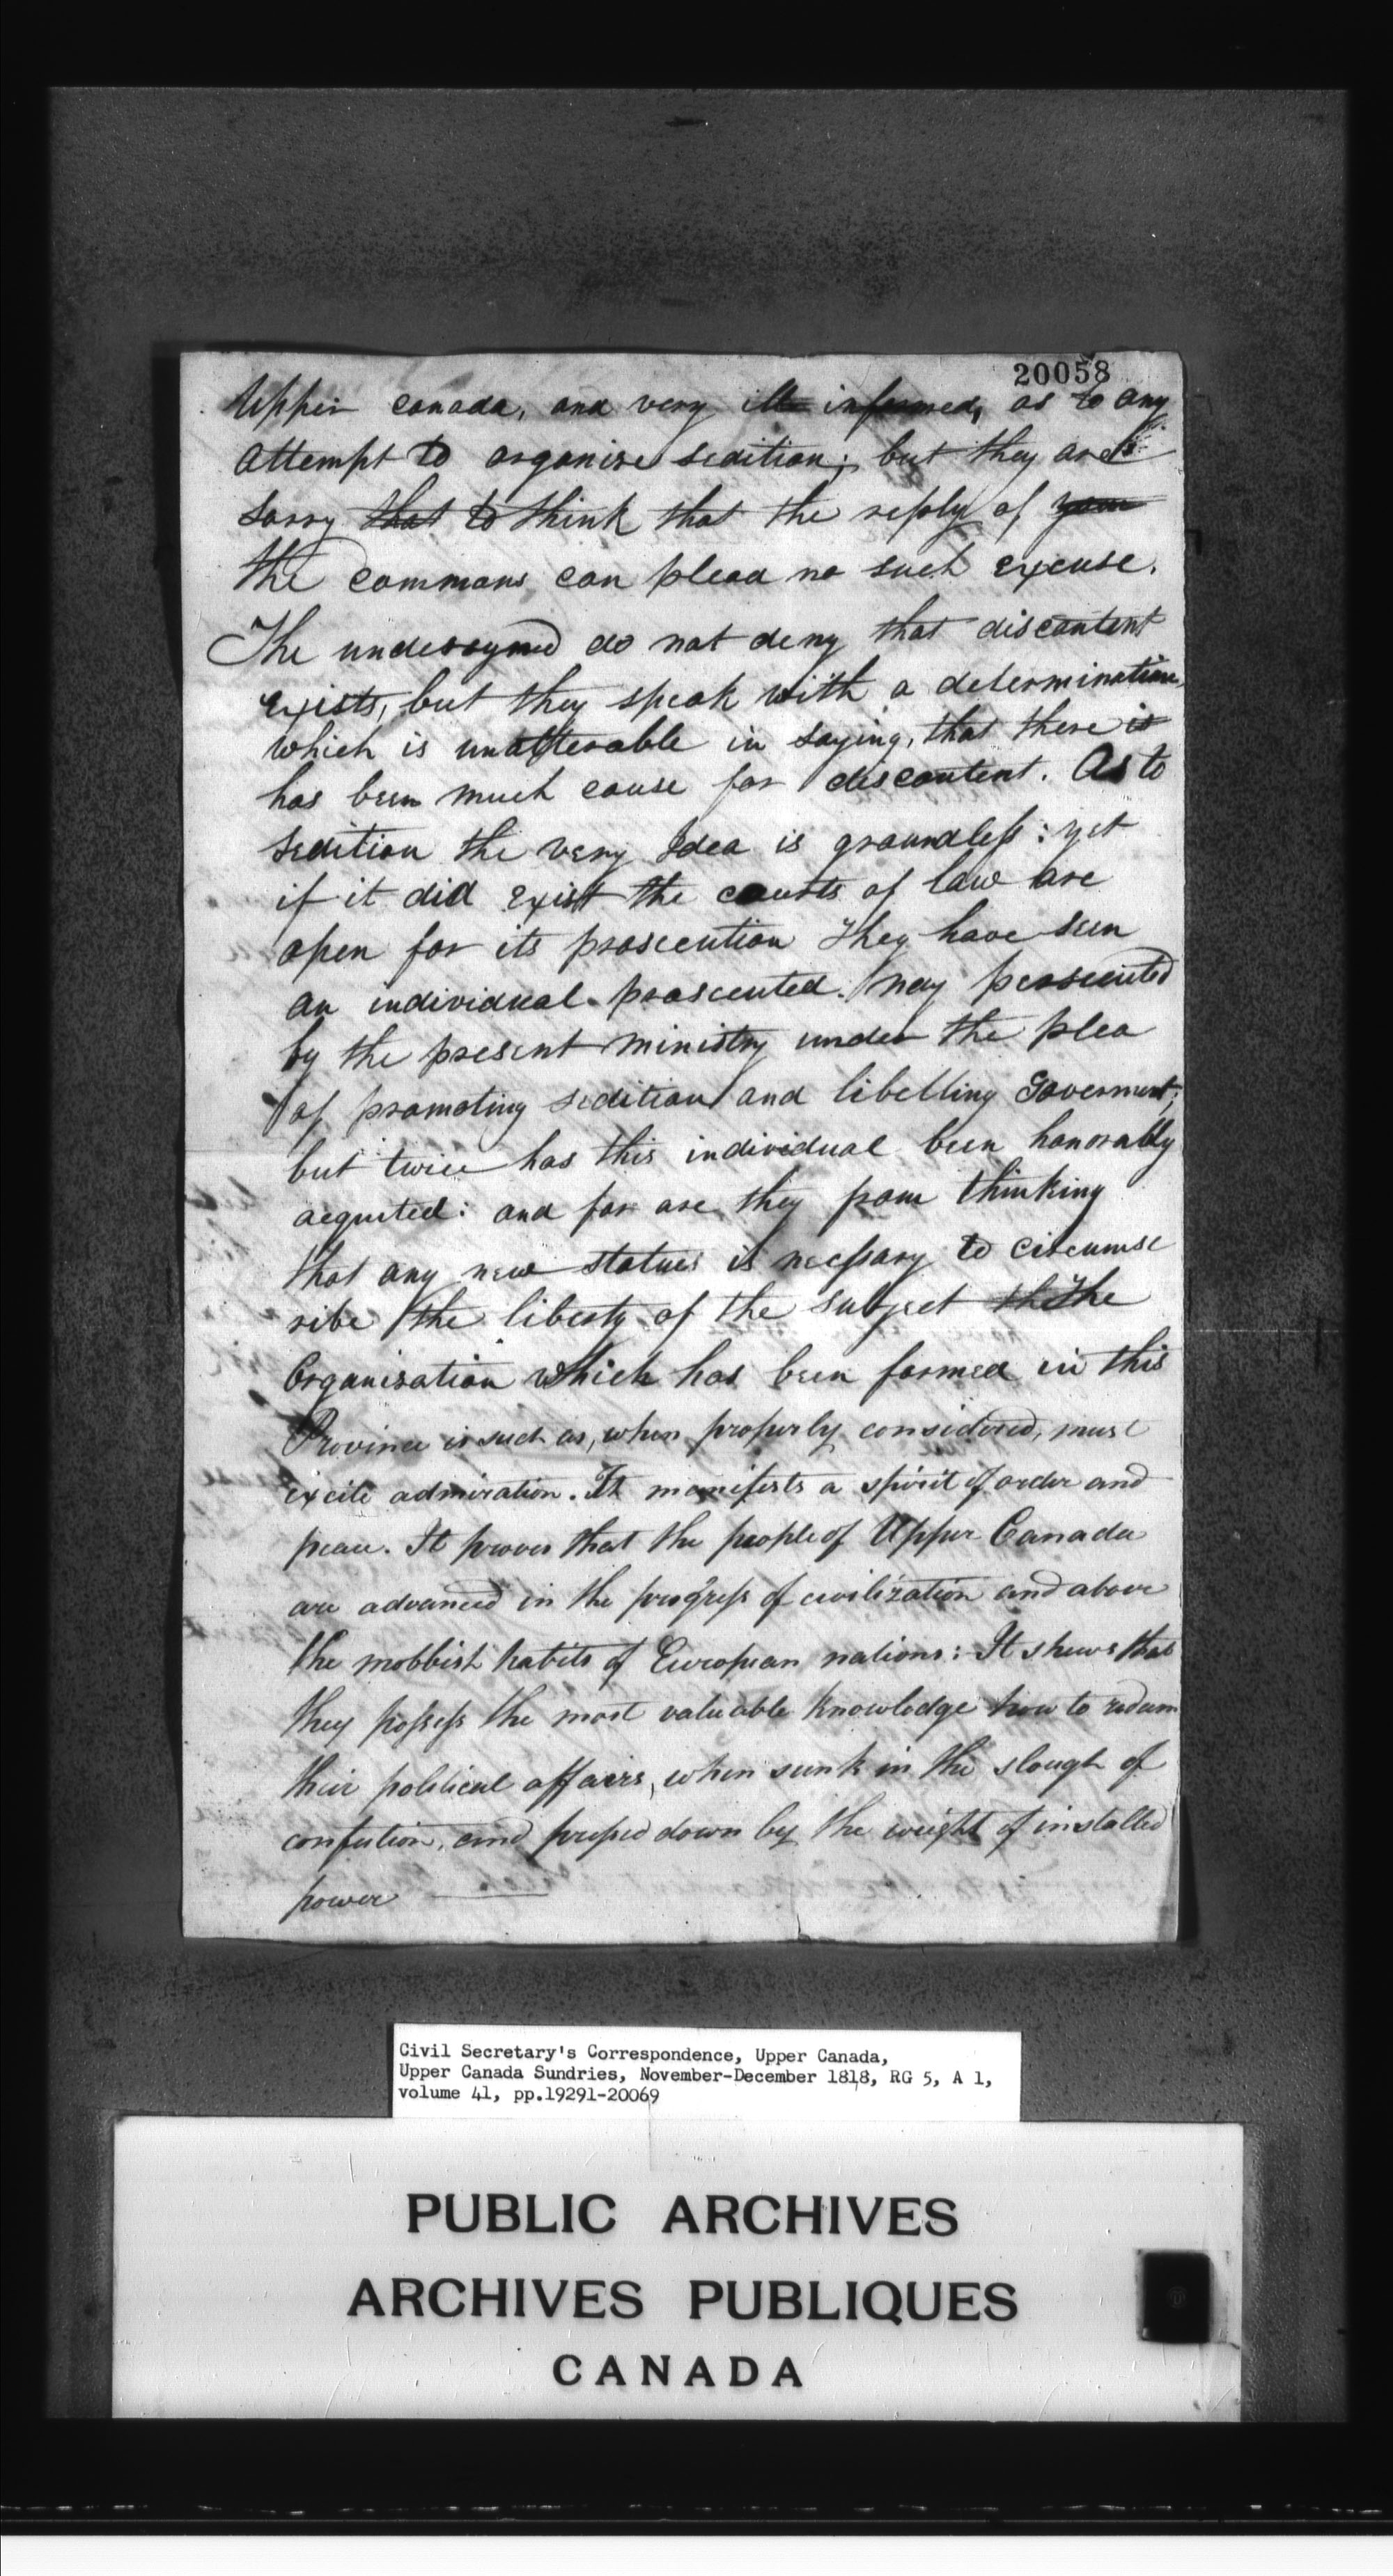 20058
Upper canada, and very ill informed, as to any
attempt to organise sedition; but they are
sorry that to think that the reply of your
the commons can plead no such excuse.
The undersigned do not deny that discontent
exists, but they speak with a determination,
which is unalterable in saying, that there is
has been much cause for discontent. As to
sedition the very Idea is groundless: yet
if it did exist the courts of law are
open for its prosecution They have seen
an individual prosecuted. nay persecuted
by the present ministry under the plea
of promoting sedition and libelling Goverment;
but twice has this individual been honorably
acquted: and far are they from thinking
that any new statues is necessary to circumsc
ribe the liberty of the subject th The
Organisation which has been formed in this
Province is such as, when properly considered, must
excite admiration. It manifests a spirit of order and
peace. It proves that the people of Upper Canada
are advanced in the progress of civilization and above
the mobbish habits of European nations: It shews that
they possess the most valuable knowledge how to redeem
their political affairs, when sunk in the slough of
confution, and pressed down by the weight of installed
power
Civil Secretary's Correspondence, Upper Canada,
Upper Canada Sundries, November-December 1818, RG 5, A 1,
volume 41, pp.19291-20069
PUBLIC ARCHIVES
ARCHIVES PUBLIQUES
CANADA